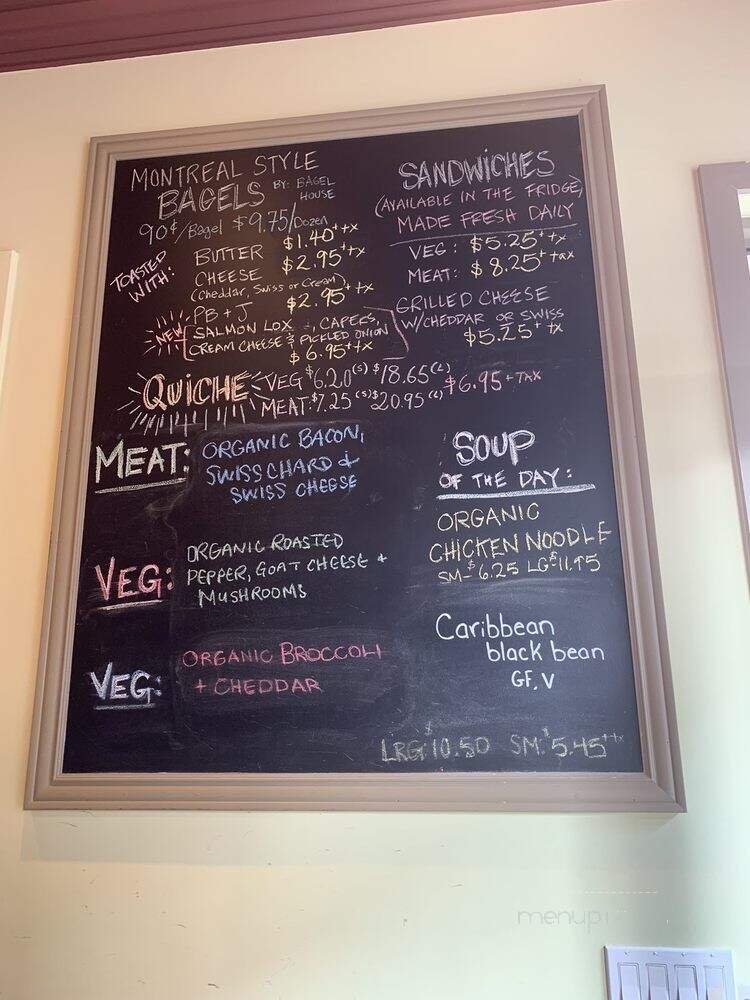 MONTREAL STYLE
BAGELS BY: BAGEL HOUSE
90¢/Bagel $9.75/Dozen
TOASTED WITH:
BUTTER $1.40 + tx
CHEESE $2.95 + tx
(Cheddar, Swiss or Cream)
PB + J $2.95 + tx
NEW SALMON LOX, CAPERS,
CREAM CHEESE & PICKLED ONION
$6.95 + tx
SANDWICHES
(AVAILABLE IN THE FRIDGE)
MADE FRESH DAILY
VEG: $5.25 + tx
MEAT: $8.25 + tax
GRILLED CHEESE
W/CHEDDAR OR SWISS
$5.25 + tx
QUICHE
VEG $6.20 (S) $18.65 (L)
MEAT: $7.25 (S) $20.95 (L)
$6.95 + TAX
MEAT: ORGANIC BACON,
SWISS CHARD &
SWISS CHEESE
VEG: ORGANIC ROASTED
PEPPER, GOAT CHEESE +
MUSHROOMS
VEG: ORGANIC BROCCOLI
+ CHEDDAR
SOUP
OF THE DAY:
ORGANIC
CHICKEN NOODLE
SM- $6.25 LG $11.75
Caribbean
black bean
GF, V
LRG: $10.50 SM: $5.45 + tx
menupi